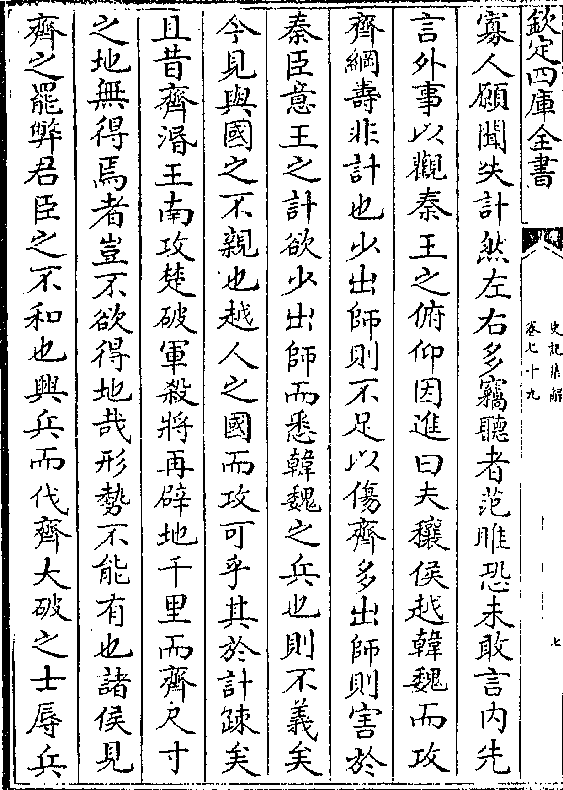 欽定四庫全書
史記集解
卷七十九
七
寡人願聞失計然左右多竊聽者范睢恐未敢言内先
言外事以觀秦王之俯仰因進曰夫穰侯越韓魏而攻
齊綱壽非計也少出師則不足以傷齊多出師則害於
秦臣意王之計欲少出師而悉韓魏之兵也則不義矣
今見與國之不親也越人之國而攻可乎其於計疎矣
且昔齊湣王南攻楚破軍殺將再辟地千里而齊尺寸
之地無得焉者豈不欲得地哉形勢不能有也諸侯見
齊之罷弊君臣之不和也興兵而伐齊大破之士辱兵